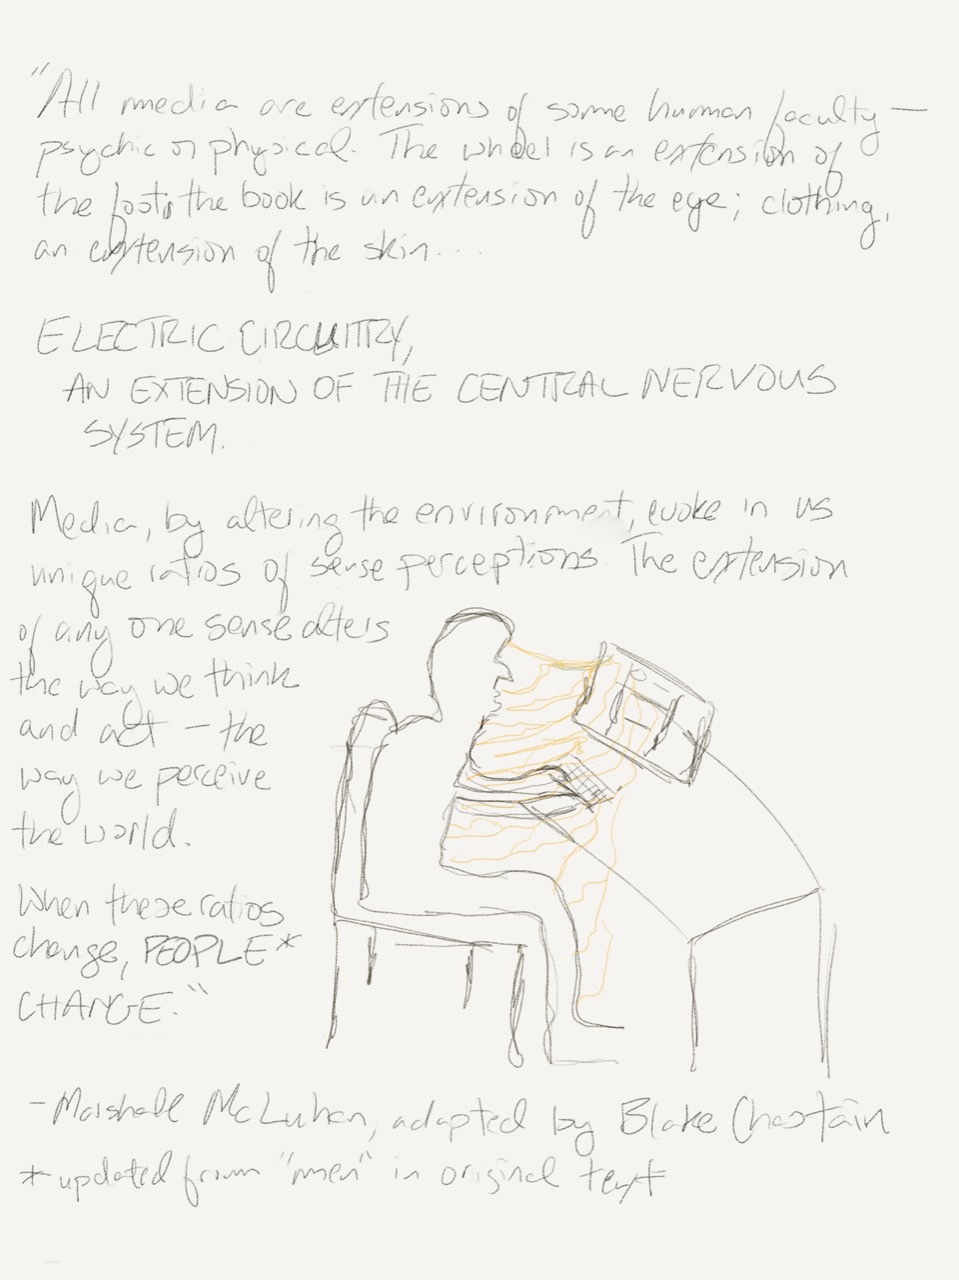 "All media are extensions of some human faculty —
psychic or physical. The wheel is an extension of
the foot; the book is an extension of the eye; clothing,
an extension of the skin...
ELECTRIC CIRCUITRY,
AN EXTENSION OF THE CENTRAL NERVOUS
SYSTEM.
Media, by altering the environment, evoke in us
unique ratios of sense perceptions. The extension
of any one sense alters
the way we think
and act — the
way we perceive
the world.
When these ratios
change, PEOPLE*
CHANGE."
- Marshall McLuhan, adapted by Blake Chastain
* updated from "men" in original text